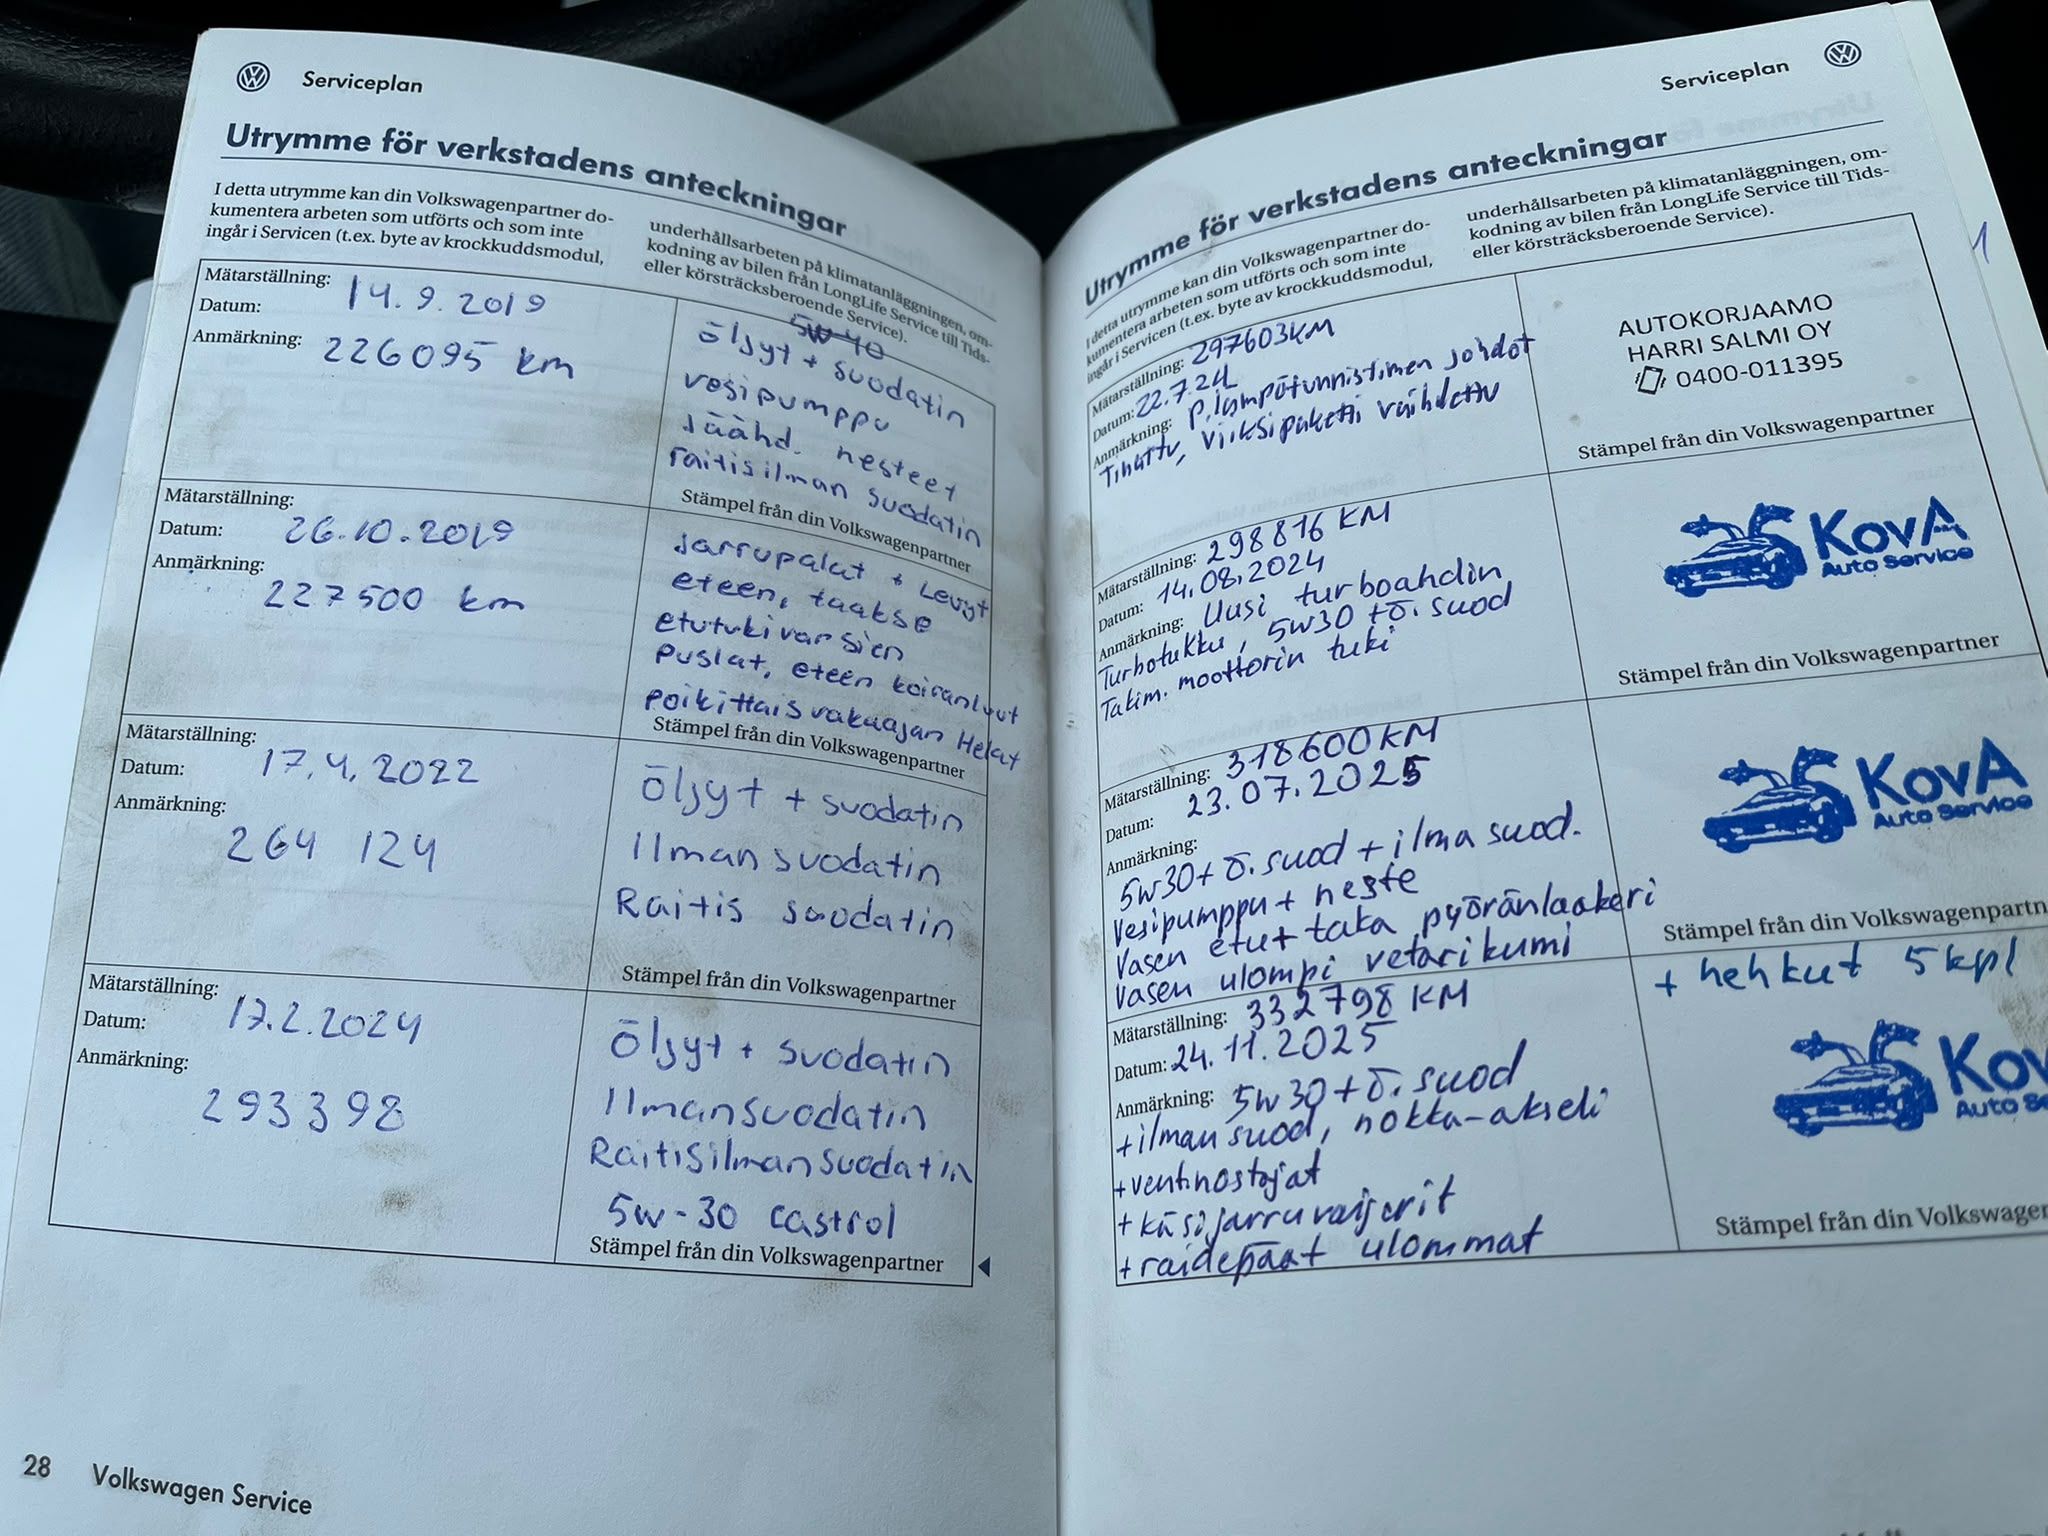 Serviceplan
Utrymme för verkstadens anteckningar
I detta utrymme kan din Volkswagenpartner do-
kumentera arbeten som utförts och som inte
ingår i Servicen (t.ex. byte av krockkuddsmodul,
underhållsarbeten på klimatanläggningen, om-
kodning av bilen från LongLife Service till Tids-
eller körsträcksberoende Service).
Mätarställning:
Datum: 14.9.2019
Anmärkning: 226095 km
5W-40
öljyt + suodatin
vesipumppu
Jäähd. nesteet
raitisilman suodatin
Stämpel från din Volkswagenpartner
Mätarställning:
Datum: 26.10.2019
Anmärkning:
227500 km
Jarrupalat + Levyt
eteen, taakse
etutukivarsien
puslat, eteen koiranluut
poikittaisvakaajan Helat
Stämpel från din Volkswagenpartner
Mätarställning:
Datum: 17.4.2022
Anmärkning:
264 124
Öljyt + suodatin
Ilman suodatin
Raitis suodatin
Stämpel från din Volkswagenpartner
Mätarställning:
Datum: 17.2.2024
Anmärkning:
293398
Öljyt + suodatin
Ilmansuodatin
Raitisilmansuodatin
5w-30 castrol
Stämpel från din Volkswagenpartner
28 Volkswagen Service
Serviceplan
Utrymme för verkstadens anteckningar
I detta utrymme kan din Volkswagenpartner do-
kumentera arbeten som utförts och som inte
ingår i Servicen (t.ex. byte av krockkuddsmodul,
underhållsarbeten på klimatanläggningen, om-
kodning av bilen från LongLife Service till Tids-
eller körsträcksberoende Service).
1
Mätarställning: 297603KM
Datum: 22.7.24
Anmärkning: P.lämpötunnistimen johdot
Tinattu, viiksipaketti vaihdettu
AUTOKORJAAMO
HARRI SALMI OY
0400-011395
Stämpel från din Volkswagenpartner
Mätarställning: 298816 KM
Datum: 14.08.2024
Anmärkning: Uusi turboahdin
Turbotukku, 5w30 + ö. suod
Takim. moottorin tuki
KovA
Auto Service
Stämpel från din Volkswagenpartner
Mätarställning: 318600KM
Datum: 23.07.2025
Anmärkning:
5w30 + ö. suod + ilma suod.
Vesipumppu + neste
Vasen etu + taka pyöränlaakeri
Vasen ulompi vetarikumi
KovA
Auto Service
Stämpel från din Volkswagenpartn
+ hehkut 5kpl
Mätarställning: 332798 KM
Datum: 24.11.2025
Anmärkning: 5w30 + ö. suod
+ilman suod, nokka-akseli
+ventnostajat
+käsijarruvaijerit
+raidepäät ulommat
Kov
Auto Se
Stämpel från din Volkswagenpar